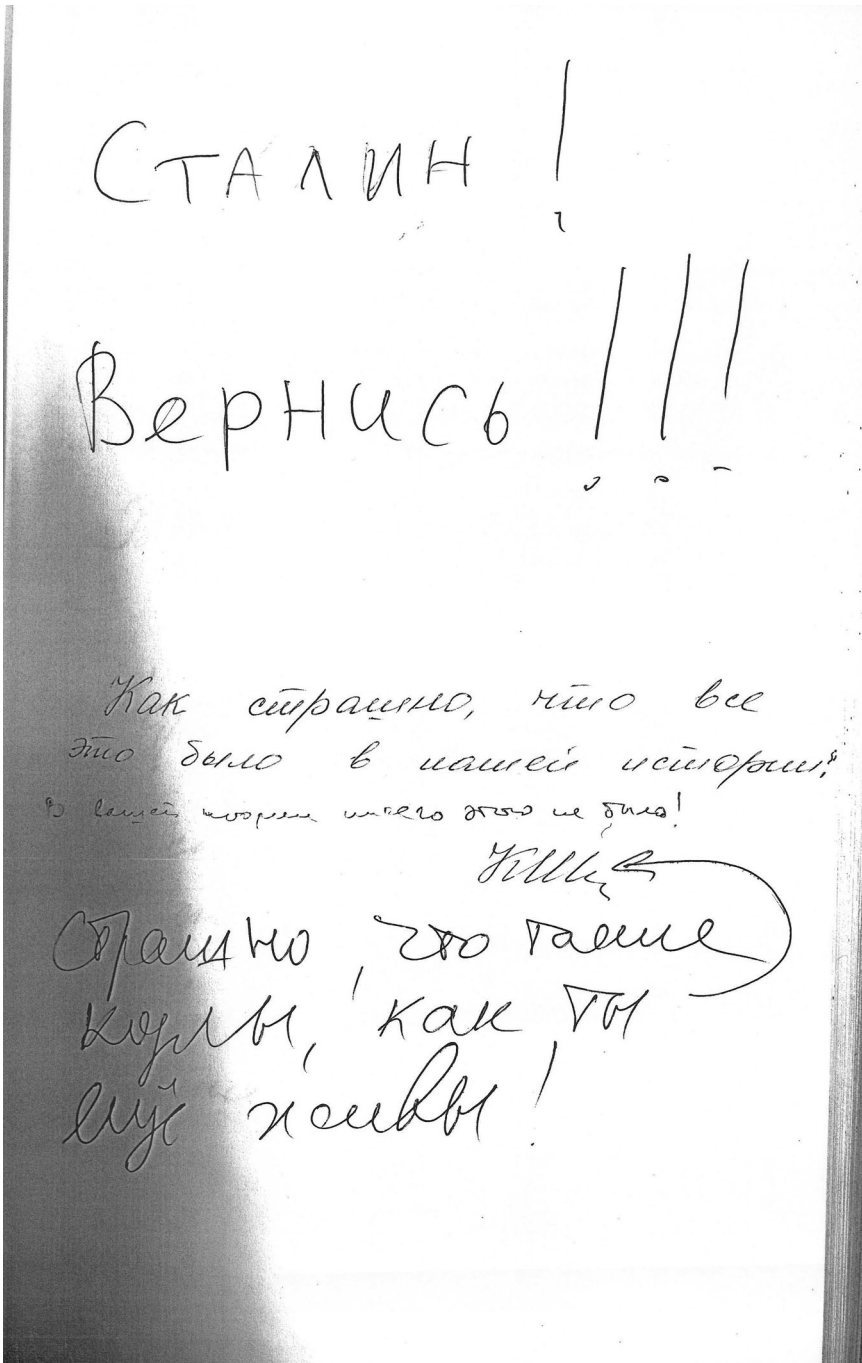 Сталин!
Вернись!!!
Как страшно, что все
это было в нашей истории!
В вашей истории ничего этого не было!
Страшно, что такие
козлы, как ты
ещё живы!